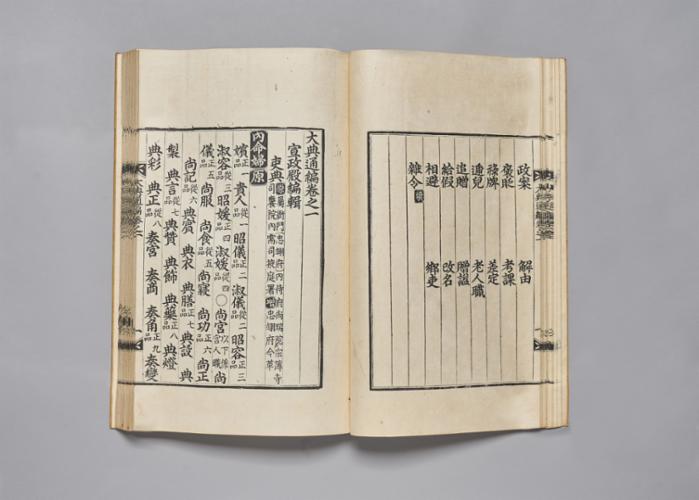 政案 解由
褒貶 考課
發牌 差定
遞兒 老人職
追贈 贈諡
給假 改名
相避 鄕吏
雜令
大典通編卷之一
宣政殿編輯
吏典
內命婦 原
嬪正一品 貴人從一品 昭儀正二品 淑儀從二品 昭容正三品
淑容從三品 昭媛正四品 淑媛從四品 ○尙宮 尙
儀正五品 尙服 尙食從五品 尙寢 尙功正六品 尙正
尙記從六品 典賓 典衣 典膳正七品 典設 典
製 典言從七品 典贊 典飾 典藥正八品 典燈
典彩 典正從八品 奏宮 奏商 奏角正九品 奏變